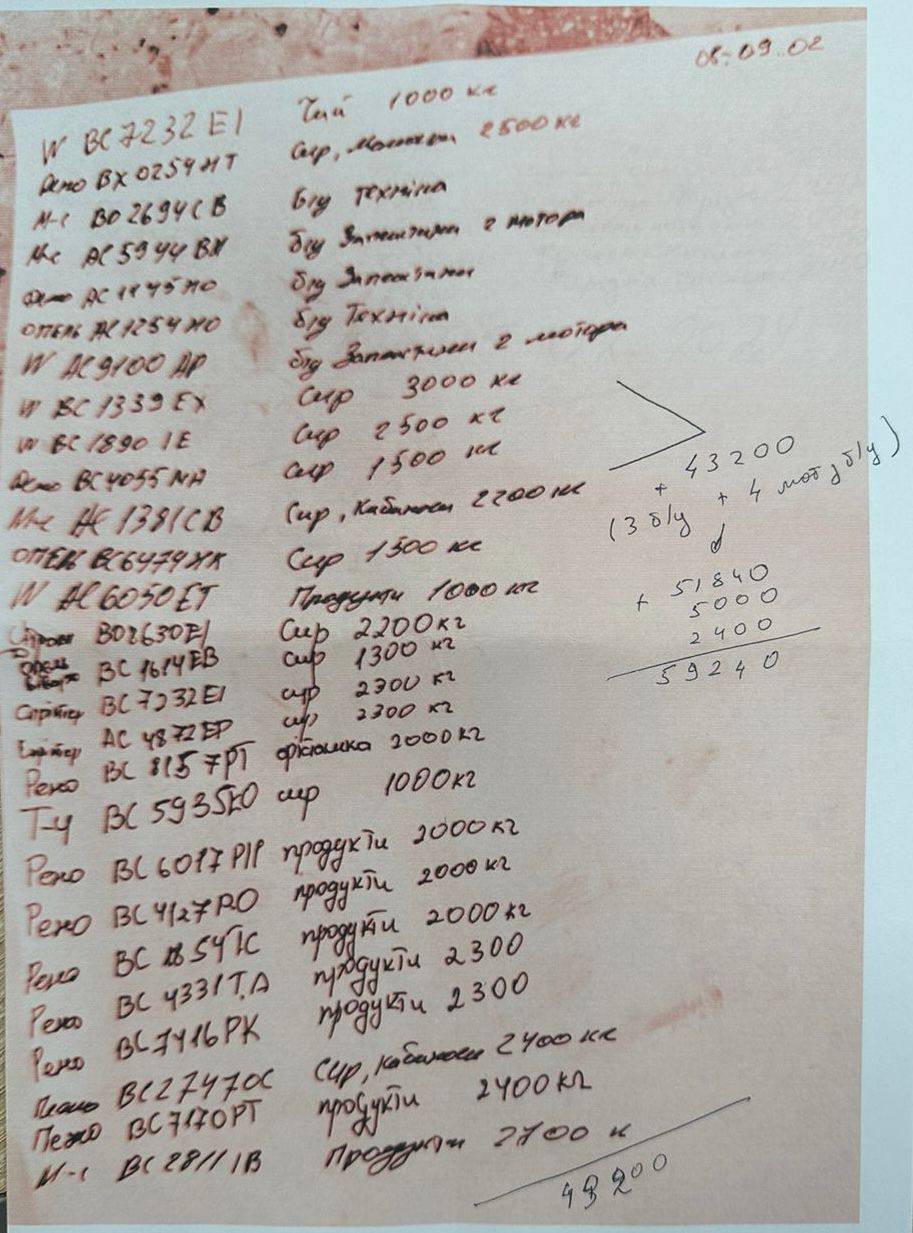 08.09.02
W BC 7232 EI Чай 1000 кг
Рено BX 0254 HT Сир, 2500 кг
М-с BO 2694 CB б/у Техніка
М-с AC 5944 BX б/у Запчастини 2 мотора
AC 1145 MO б/у Запчастини
опель AC 1254 MO б/у Техніка
W AC 9100 AP б/у Запчастини 2 мотора
W BC 1339 EX Сир 3000 кг
W BC 1890 IE Сир 2500 кг
Рено BC 4055 MA Сир 1500 кг
М-с AC 1381 CB Сир, Кабаноси 2200 кг
+ 43200
(3 б/у + 4 мот у б/у)
опель BC 6474 XK Сир 1500 кг
W AC 6050 ET Продукти 1000 кг
+ 51840
5000
2400
59240
BO 2630 EI Сир 2200 кг
опель BC 1614 EB сир 1300 кг
Спрінтер BC 7232 EI сир 2300 кг
Спрінтер AC 4872 EP сир 2300 кг
Рено BC 8157 PT 2000 кг
Т-4 BC 5935 EO сир 1000 кг
Рено BC 6017 PP продукти 2000 кг
Рено BC 4127 PO продукти 2000 кг
Рено BC 8541 C продукти 2000 кг
Рено BC 4331 TA продукти 2300
Рено BC 7416 PK продукти 2300
BC 2747 OC Сир, Кабаноси 2400 кг
Пежо BC 7170 PT продукти 2400 кг
М-с BC 2811 IB Продукти 2700 к
43200